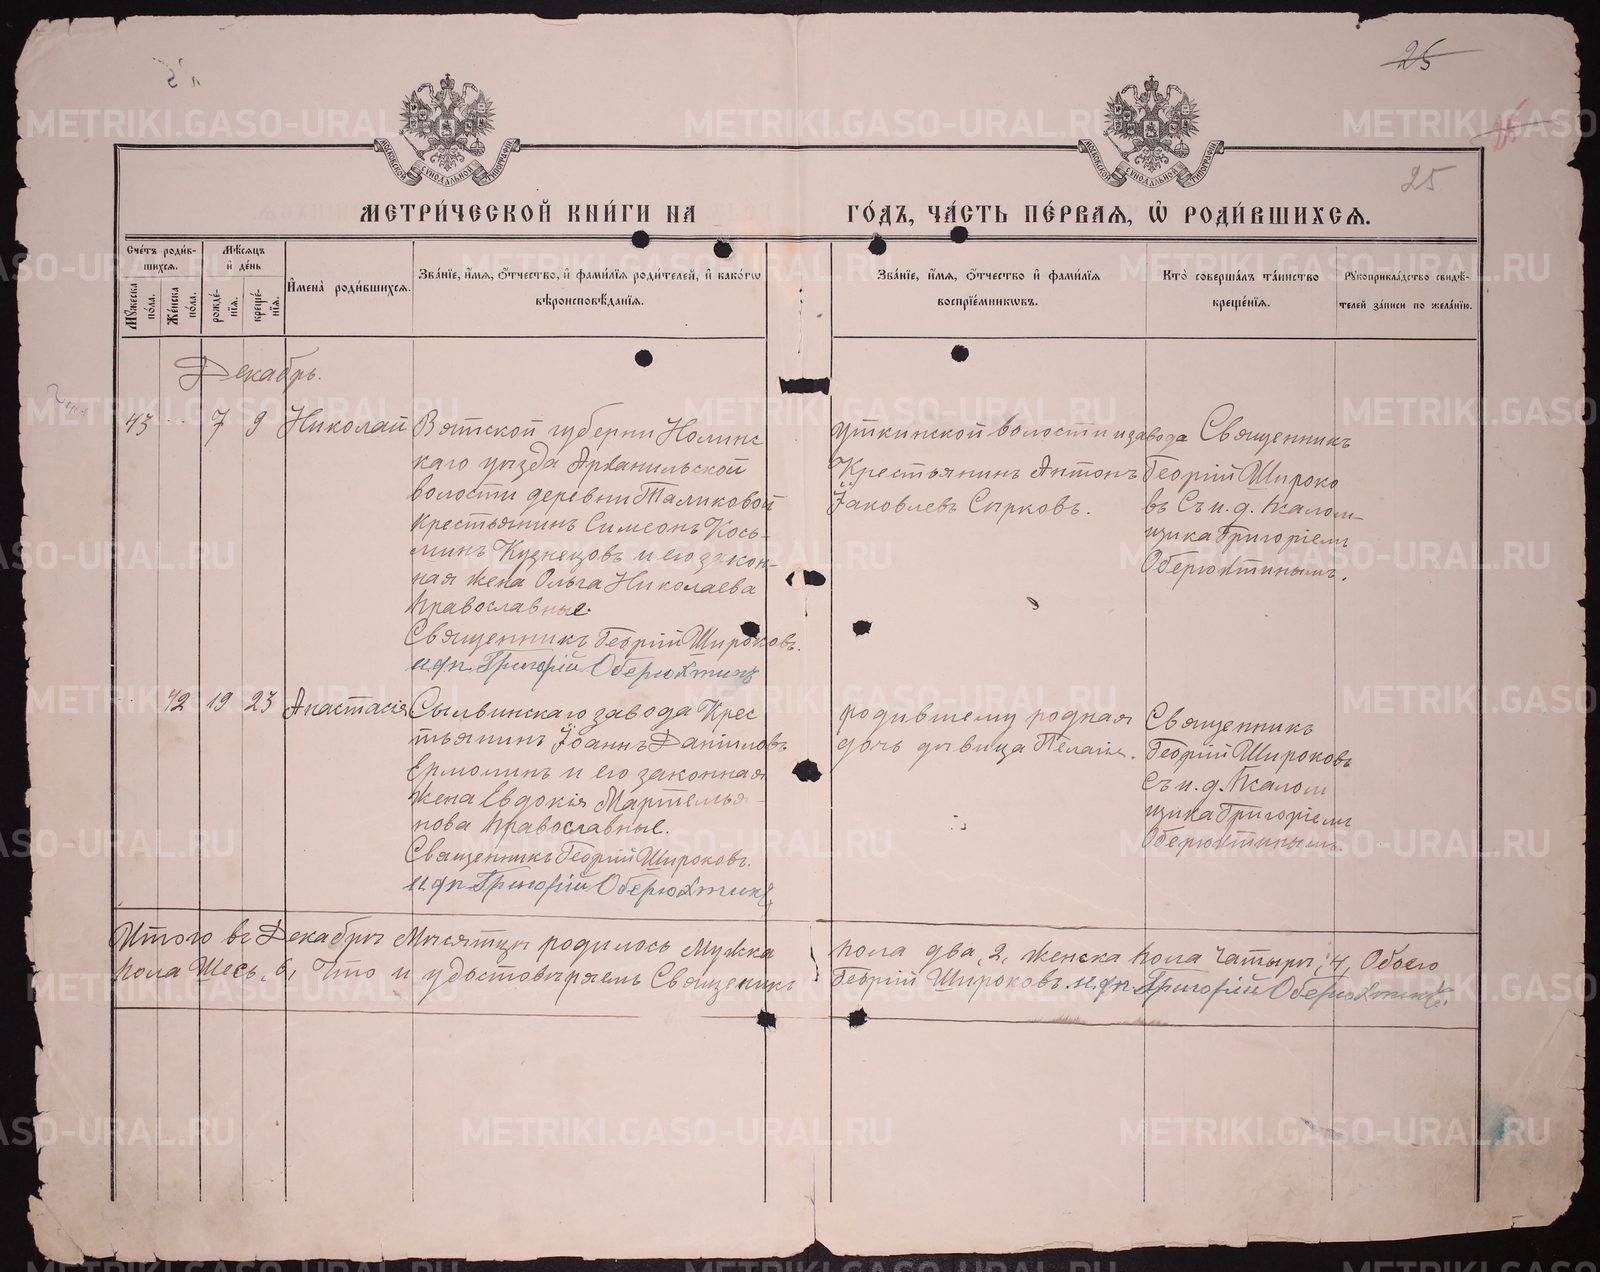 25
25
25
МЕТРИ́ЧЕСКОЙ КНИ́ГИ НА
ГО́ДЪ, ЧА́СТЬ ПЕ́РВАЯ, Ѡ҆ РОДИ́ВШИХСЯ.
МОСКОВСКОЙ СѴНОДАЛЬНОЙ ТИПОГРАФІИ
МОСКОВСКОЙ СѴНОДАЛЬНОЙ ТИПОГРАФІИ
Счетъ роди́в-
шихся.
Мѣсяцъ
и҆ де́нь
Мꙋжеска по́ла.
Же́нска по́ла.
рожде́нїѧ.
креще́нїѧ.
И҆мена̀ роди́вшихся.
Зва́нїе, и҆́мѧ, ѻ҆́тчество, и҆ фами́лїѧ роди́телей, и҆ како́гѡ
вѣроисповѣ́данїѧ.
Зва́нїе, и҆́мѧ, ѻ҆́тчество и҆ фами́лїѧ
воспрїе́мникѡвъ.
Кто̀ соверша́лъ та́инство
креще́нїѧ.
Рꙋкоприкла́дство свидѣ́-
телей за́писи по жела́нїю.
Декабрь.
43 7 9 Николай
Вятской губерни Нолинс
каго уѣзда Архангильской
волости деревни Таликовой
крестьянинъ Симеонъ Косъ-
минъ Кузнецовъ и его закон-
ная жена Ольга Николаева
Православные
Священникъ Георгій Широковъ.
и.д.п. Григорій Оберюхтинъ
Уткинской волости и завода
Крестьянинъ Антонъ
Іаковлевъ Сырковъ.
Священникъ
Георгій Широко
въ Съ и. д. Псалом-
щика Григоріем
Оберюхтинымъ.
42 19 23 Анастасія
Сылвинскаго завода Крес
тьянинъ Іоаннъ Данииловъ
Ермолинъ и его законная
жена Евдокія Мартемья-
нова Православные.
Священникъ Георгій Широковъ.
и.д.п. Григорій Оберюхтинъ
родившему родная
дочь дѣвица Пелагія.
Священникъ
Георгій Широковъ
Съ и. д. Псалом
щика Григоріем
Оберюхтинымъ.
Итого въ Декабрѣ Мѣсяцѣ родилось Мужска
пола два, 2, женска пола Чатыры, 4, Обоего
пола Шесь, 6, Что и удостовѣряемъ Священикъ
Георгій Широковъ. и.д.п. Григорій Оберюхтинъ.
METRIKI.GASO-URAL.RU